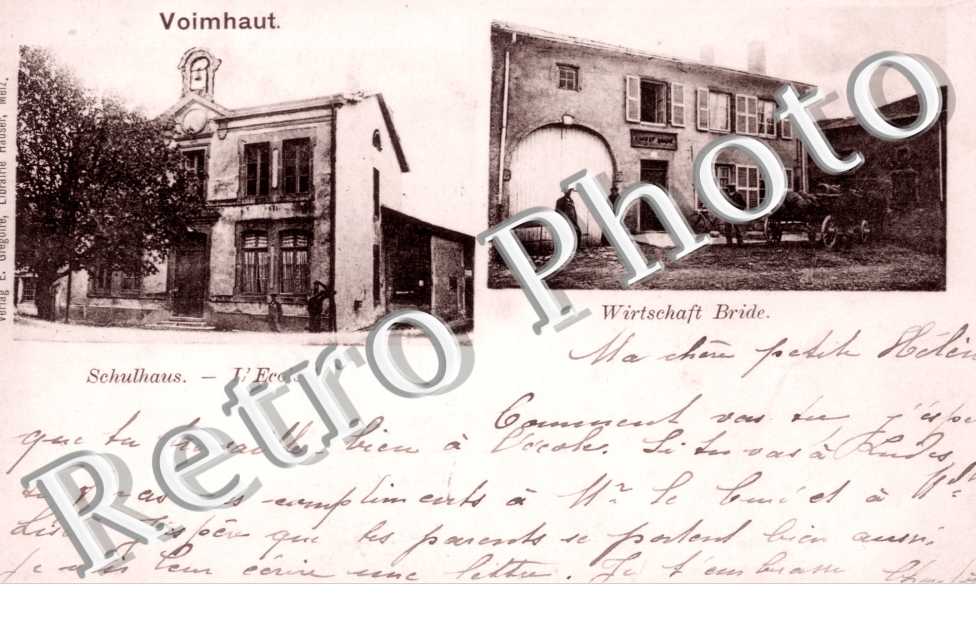 Voimhaut.
Verlag E. Grégoire, Librairie Hauser, Metz.
Schulhaus. — L'Ecole
Wirtschaft Bride.
Ma chère petite Hélèn
Comment vas tu j'espè
que tu travailles bien à l'école. Si tu vas à Ludes,
tu feras mes compliments à Mr le Curé et à Mlle
J'espère que tes parents se portent bien aussi,
Je vais leur écrire une lettre. Je t'embrasse
Retro Photo